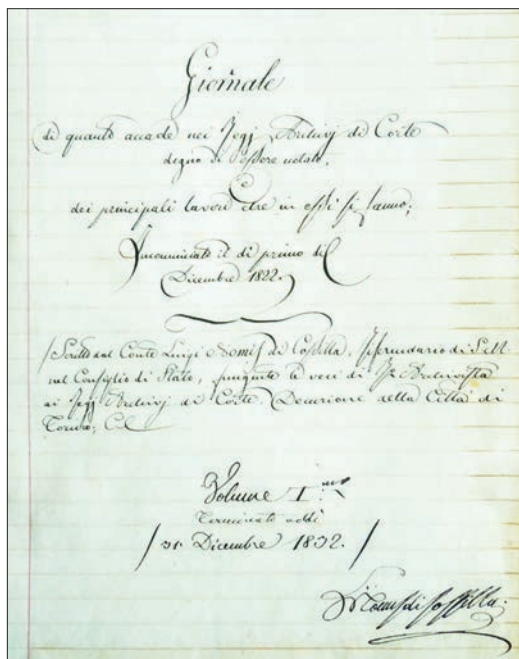 Giornale
di quanto accade nei Regj Archivj di Corte
degno di essere notato,
dei principali lavori che in essi si fanno;
Incominciato il dì primo di
Dicembre 1822.
Scritto dal Conte Luigi Nomis di Cossilla, Referendario di S.M.
nel Consiglio di Stato, fungente le veci di Archivista
ai Regj Archivj di Corte, Decurione della Città di
Torino;
Volume I.mo
Terminato addì
31 Dicembre 1832.
Nomis di Cossilla.